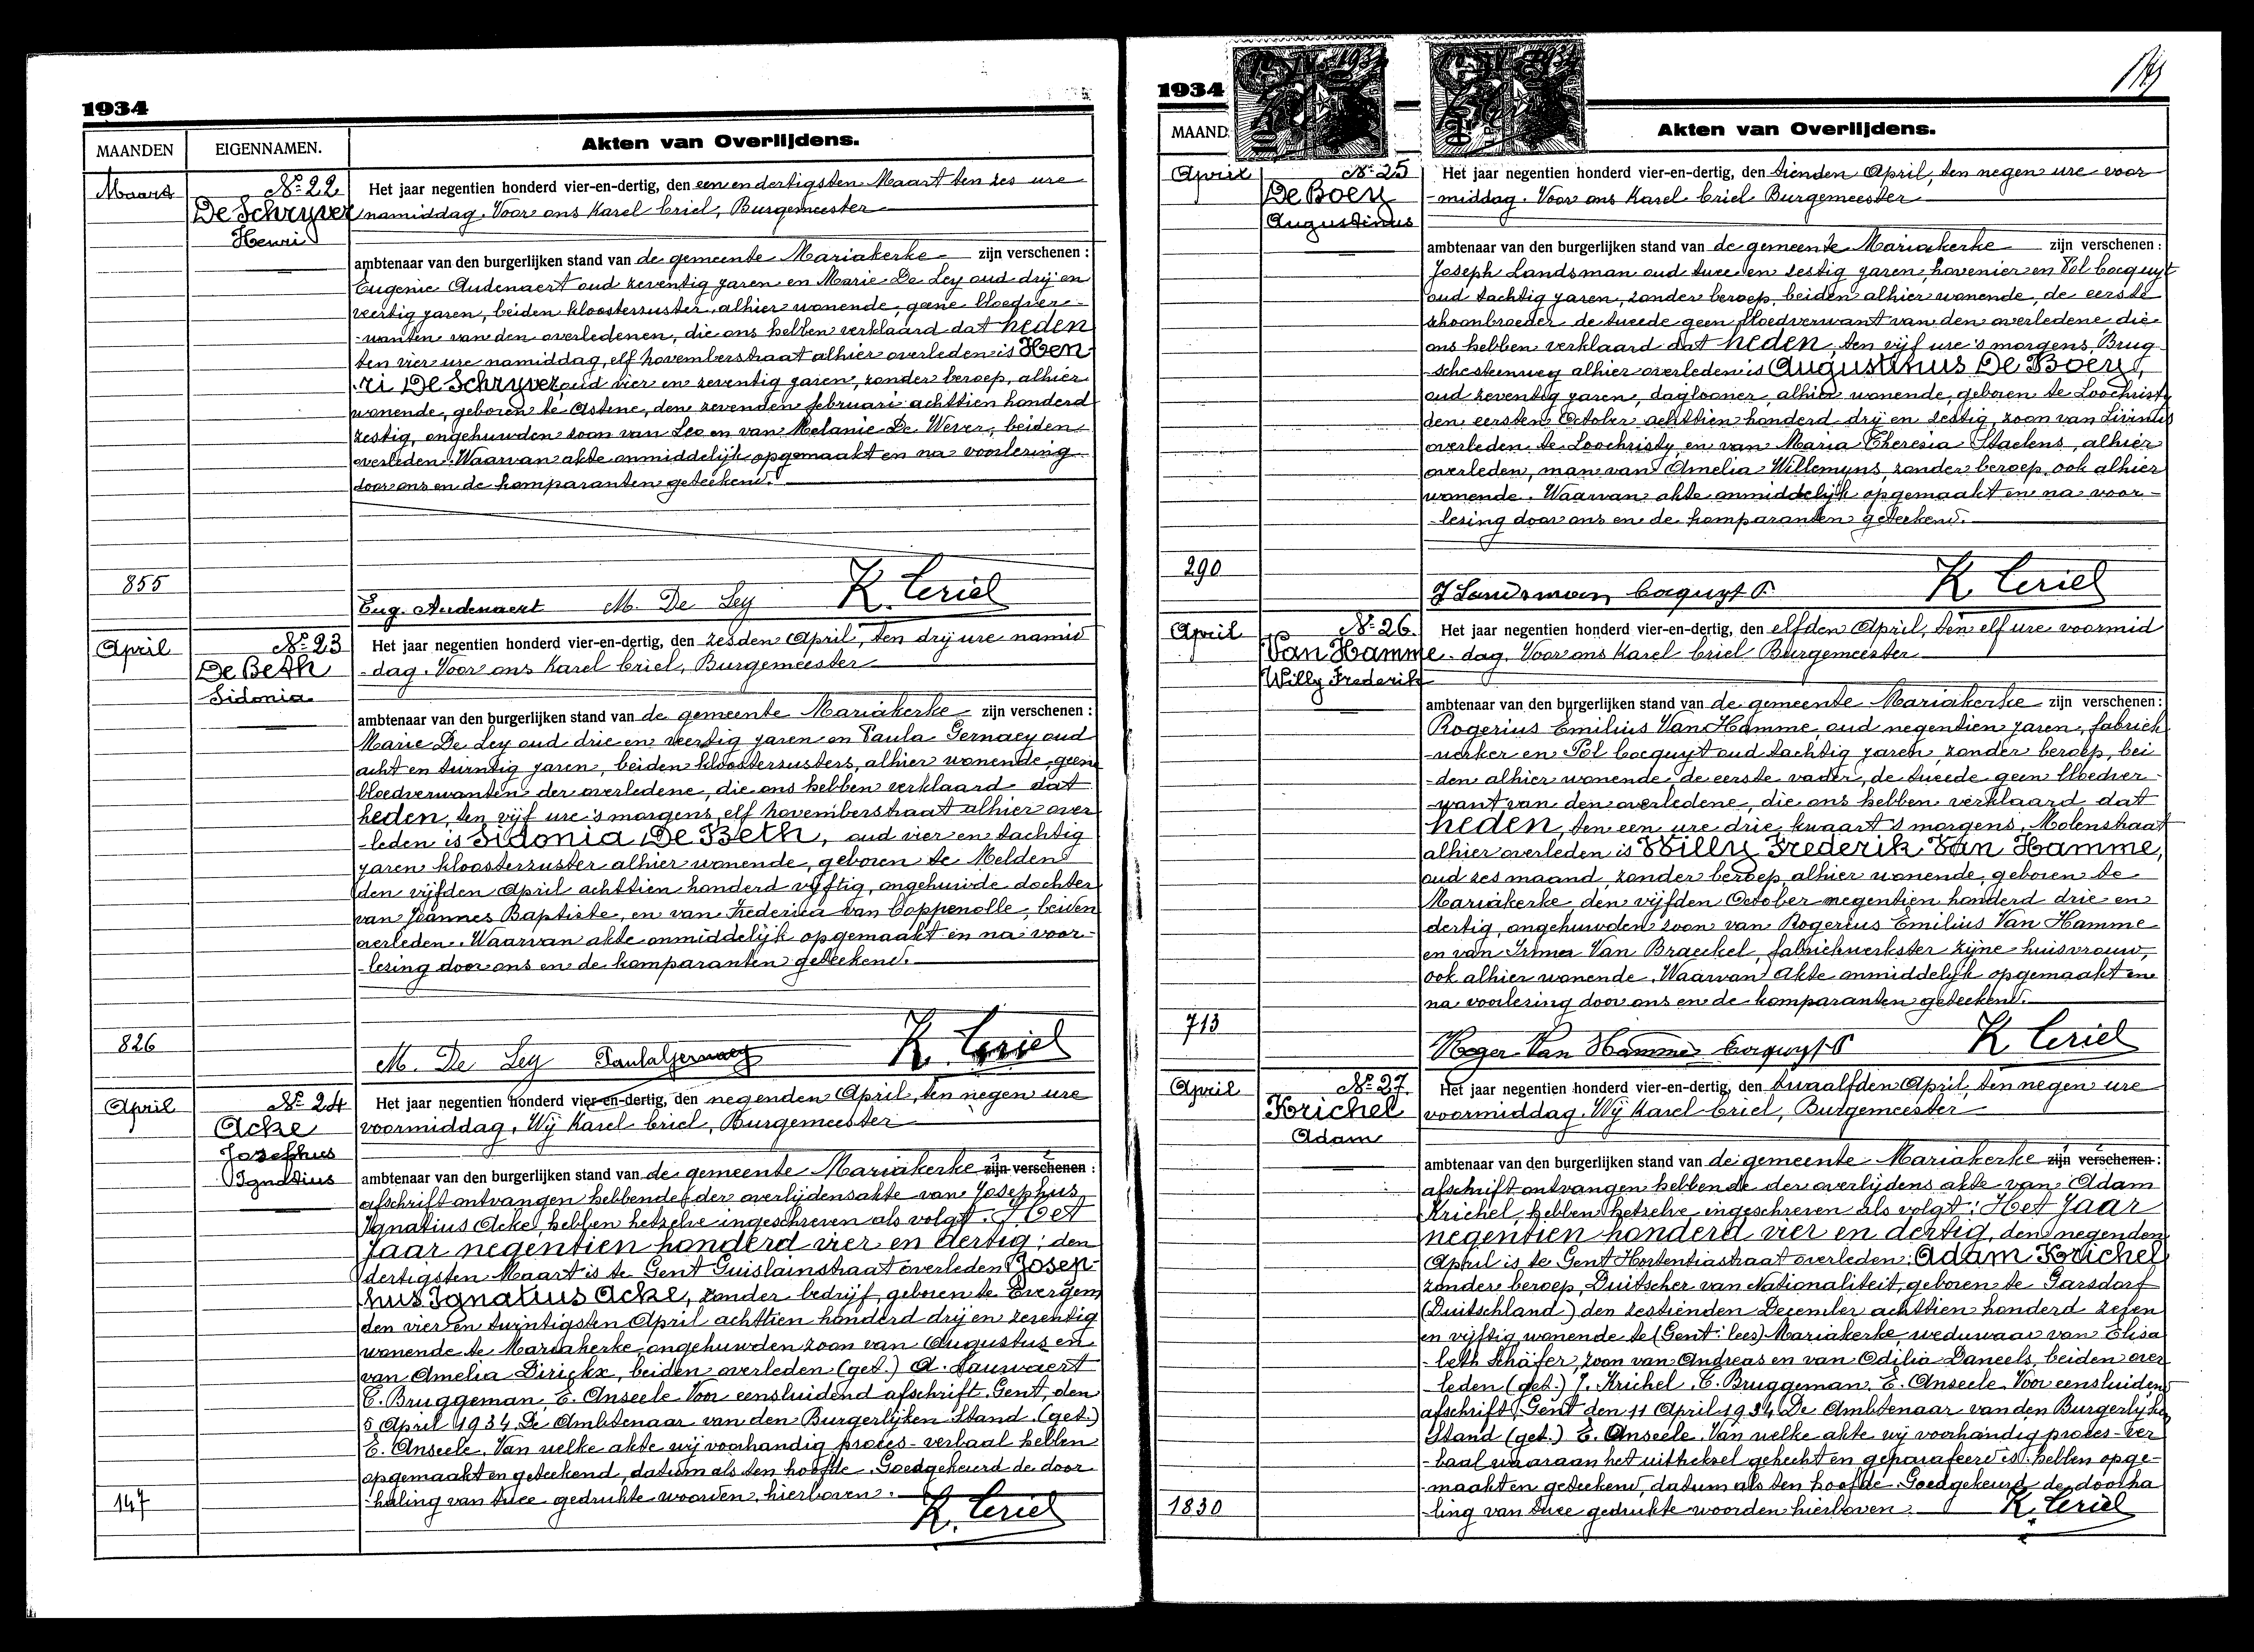 1934
MAANDEN
EIGENNAMEN.
Akten van Overlijdens.
Maart
Nº 22
De Schryver
Henri
Het jaar negentien honderd vier-en-dertig, den eenendertigsten Maart ten zes ure
namiddag. Voor ons Karel Criel, Burgemeester
ambtenaar van den burgerlijken stand van de gemeente Mariakerke zijn verschenen :
Eugenie Audenaert oud zeventig jaren en Marie De Ley oud drij en
veertig jaren, beiden kloosterzuster, alhier wonende, geene bloedver-
-wanten van den overledenen, die ons hebben verklaard dat heden
ten vier ure namiddag, elf novemberstraat alhier overleden is Hen-
-ri De Schryver, oud vier en zeventig jaren, zonder beroep, alhier
wonende, geboren te Astene, den zevenden februari achttien honderd
zestig, ongehuwden zoon van Leo en van Melanie De Wever, beiden
overleden. Waarvan akte onmiddelijk opgemaakt en na voorlezing
door ons en de komparanten geteekend.
855
Eug. Audenaert M. De Ley K. Criel
April
Nº 23
De Beth
Sidonia
Het jaar negentien honderd vier-en-dertig, den zesden April, ten drij ure namid
-dag. Voor ons Karel Criel, Burgemeester
ambtenaar van den burgerlijken stand van de gemeente Mariakerke zijn verschenen :
Marie De Ley oud drie en veertig jaren en Paula Gernaey oud
acht en twintig jaren, beiden kloosterzusters, alhier wonende, geen
bloedverwanten der overledene, die ons hebben verklaard dat
heden, ten vijf ure 's morgens, elf novemberstraat alhier over
-leden is Sidonia De Beth, oud vier en tachtig
jaren kloosterzuster alhier wonende, geboren te Melden
den vijfden April achttien honderd vijftig, ongehuwde dochter
van Joannes Baptiste, en van Frederica Van Coppenolle, beiden
overleden. Waarvan akte onmiddelijk opgemaakt en na voor-
-lezing door ons en de komparanten geteekend.
826
M. De Ley Paula Gernaey K. Criel
April
Nº 24
Acke
Josephus
Ignatius
Het jaar negentien honderd vier-en-dertig, den negenden April, ten negen ure
voormiddag. Wij Karel Criel, Burgemeester
ambtenaar van den burgerlijken stand van de gemeente Mariakerke zijn verschenen :
afschrift ontvangen hebbende der overlijdensakte van Josephus
Ignatius Acke, hebben hetzelve ingeschreven als volgt. Het
jaar negentien honderd vier en dertig, den
dertigsten Maart is te Gent Guislainstraat overleden Josep-
hus Ignatius Acke, zonder bedrijf, geboren te Evergem
den vier en twintigsten April achttien honderd drij en zeventig
wonende te Mariakerke ongehuwden zoon van Augustus en
van Amelia Dirickx, beiden overleden (get.) A. Lauwaert
C. Bruggeman, E. Anseele Voor eensluidend afschrift. Gent, den
5 April 1934. De Ambtenaar van den Burgerlijken Stand. (get.)
E. Anseele. Van welke akte wij voorhandig proces-verbaal hebben
opgemaakt en geteekend, datum als ten hoofde. Goedgekeurd de door-
-haling van twee gedrukte woorden, hierboven.
147
K. Criel
1934
MAAND
Akten van Overlijdens.
April
Nº 25
De Boey
Augustinus
Het jaar negentien honderd vier-en-dertig, den tienden April, ten negen ure voor
-middag. Voor ons Karel Criel Burgemeester
ambtenaar van den burgerlijken stand van de gemeente Mariakerke zijn verschenen :
Joseph Landsman oud twee en zestig jaren, hovenier en Pol Cocquyt
oud tachtig jaren, zonder beroep, beiden alhier wonende, de eerste
schoonbroeder de tweede geen bloedverwant van den overledene die
ons hebben verklaard dat heden, ten vijf ure 's morgens, Brug-
-schesteenweg alhier overleden is Augustinus De Boey,
oud zeventig jaren, daglooner, alhier wonende, geboren te Loochristy
den eersten October achttien honderd drij en zestig, zoon van Livinus
overleden te Loochristy en van Maria Theresia Staelens, alhier
overleden, man van Amelia Willemyns, zonder beroep ook alhier
wonende. Waarvan akte onmiddelijk opgemaakt en na voor-
-lezing door ons en de komparanten geteekend.
290
J Landsman Cocquyt P. K. Criel
April
Nº 26.
Van Hamme
Willy Frederik
Het jaar negentien honderd vier-en-dertig, den elfden April, ten elf ure voormid
-dag. Voor ons Karel Criel Burgemeester
ambtenaar van den burgerlijken stand van de gemeente Mariakerke zijn verschenen :
Rogerius Emilius Van Hamme, oud negentien jaren, fabriek
-werker en Pol Cocquyt oud tachtig jaren, zonder beroep, bei
-den alhier wonende, de eerste vader, de tweede geen bloedver-
-want van den overledene, die ons hebben verklaard dat
heden, ten een ure drie kwaart 's morgens, Molenstraat
alhier overleden is Willy Frederik Van Hamme,
oud zes maand, zonder beroep, alhier wonende, geboren te
Mariakerke, den vijfden October negentien honderd drie en
dertig, ongehuwden zoon van Rogerius Emilius Van Hamme
en van Irma Van Braeckel, fabriekwerkster zijne huisvrouw,
ook alhier wonende. Waarvan Akte onmiddelijk opgemaakt en
na voorlezing door ons en de komparanten geteekend.
713
Roger Van Hamme Cocquyt P K Criel
April
Nº 27.
Krichel
Adam
Het jaar negentien honderd vier-en-dertig, den twaalfden April, ten negen ure
voormiddag. Wij Karel Criel, Burgemeester
ambtenaar van den burgerlijken stand van de gemeente Mariakerke zijn verschenen :
afschrift ontvangen hebbende der overlijdens akte van Adam
Krichel, hebben hetzelve ingeschreven als volgt: Het Jaar
negentien honderd vier en dertig, den negenden
April is te Gent Hortentiastraat overleden: Adam Krichel
zonder beroep, Duitscher van Nationaliteit, geboren te Garsdorf
(Duitschland) den zestienden December achttien honderd zeven
en vijftig wonende te (Gent: lees) Mariakerke, weduwaar van Elisa
-beth Schäfer, zoon van Andreas en van Odilia Daneels, beiden over
-leden (get.) J. Krichel, C. Bruggeman. E. Anseele. Voor eensluidend
afschrift, Gent den 11 April 1934 De Ambtenaar van den Burgerlijken
Stand (get.) E. Anseele. Van welke akte wij voorhandig proces-ver
-baal waaraan het uittreksel gehecht en geparafeerd is hebben opge-
-maakt en geteekend, datum als ten hoofde. Goedgekeurd de doorha
-ling van twee gedrukte woorden hierboven.
1830
K. Criel